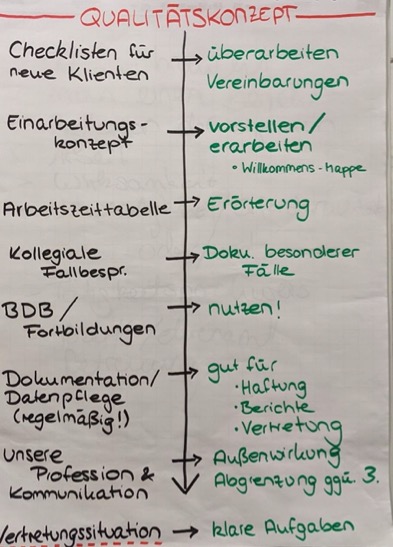 QUALITÄTSKONZEPT
Checklisten für → überarbeiten
neue Klienten Vereinbarungen
Einarbeitungs- → vorstellen/
konzept erarbeiten
• Willkommens-happe
Arbeitszeittabelle → Erörterung
Kollegiale → Doku. besonderer
Fallbespr. Fälle
BDB/ → nutzen!
Fortbildungen
Dokumentation/ → gut für
Datenpflege • Haftung
(regelmäßig!) • Berichte
• Vertretung
unsere → Außenwirkung
Profession & Abgrenzung ggü. 3.
Kommunikation
Vertretungssituation → klare Aufgaben